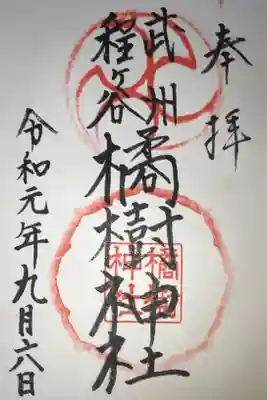 奉拝
武州
程ヶ谷
橘樹神社
令和元年九月六日
橘樹
神社